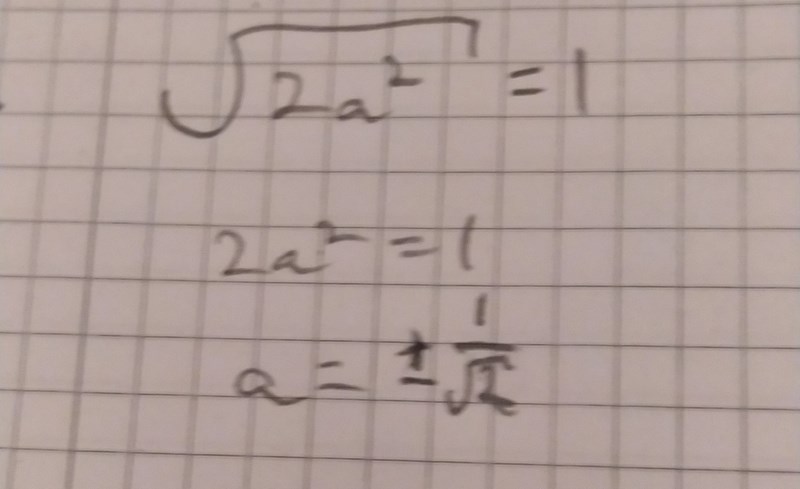 √2a² = 1
2a² = 1
a = ± 1/√2